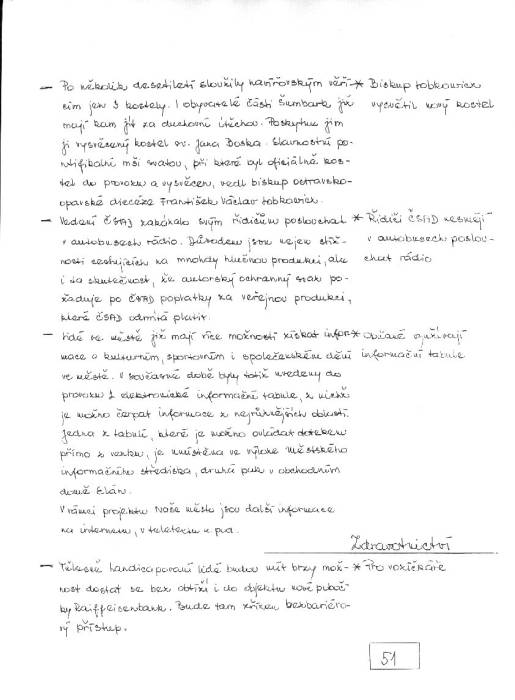 — Po několik desetiletí sloužily havířovským věří- * Biskup Lobkowicz
cím jen 3 kostely. I obyvatelé části Šumbark již vysvětil nový kostel
mají kam jít za duchovní útěchou. Poskytne jim
ji vysvěcený kostel sv. Jana Boska. Slavnostní po-
ntifikální mši svatou, při které byl oficiálně kos-
tel do provozu a vysvěcen, vedl biskup ostravsko-
opavské diecéze František Václav Lobkowicz.
— Vedení ČSAD zakázalo svým řidičům poslouchat * Řidiči ČSAD nesmějí
v autobusech rádio. Důvodem jsou nejen stíž- v autobusech poslou-
nosti cestujících na mnohdy hlučnou produkci, ale chat rádio
i ta skutečnost, že autorský ochranný svaz po-
žaduje po ČSAD poplatky za veřejnou produkci,
které ČSAD odmítá platit.
— Lidé ve městě již mají více možností získat infor- * Občané využívají
mace o kulturním, sportovním i společenském dění informační tabule
ve městě. V současné době byly totiž uvedeny do
provozu 2 elektronické informační tabule, z nichž
je možno čerpat informace z nejrůznějších oblastí.
Jedna z tabulí, které je možno ovládat dotekem
přímo z venku, je umístěna ve výloze Městského
informačního střediska, druhá pak v obchodním
domě Elán.
V rámci projektu Naše město jsou další informace
na internetu, v teletextu a pod.
Zdravotnictví
— Tělesně handicapovaní lidé budou mít brzy mož- * Pro vozíčkáře
nost dostat se bez obtíží i do objektu nové poboč-
ky Raiffeisenbank. Bude tam zřízen bezbariéro-
vý přístup.
51